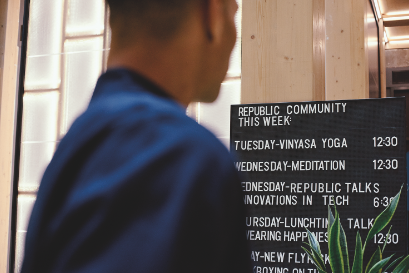 REPUBLIC COMMUNITY
THIS WEEK:
TUESDAY-VINYASA YOGA 12:30
WEDNESDAY-MEDITATION 12:30
EDNESDAY-REPUBLIC TALKS
NNOVATIONS IN TECH 6:3
URSDAY-LUNCHTIME TALK
EARING HAPPINESS 12:30
AY-NEW
BOXING ON